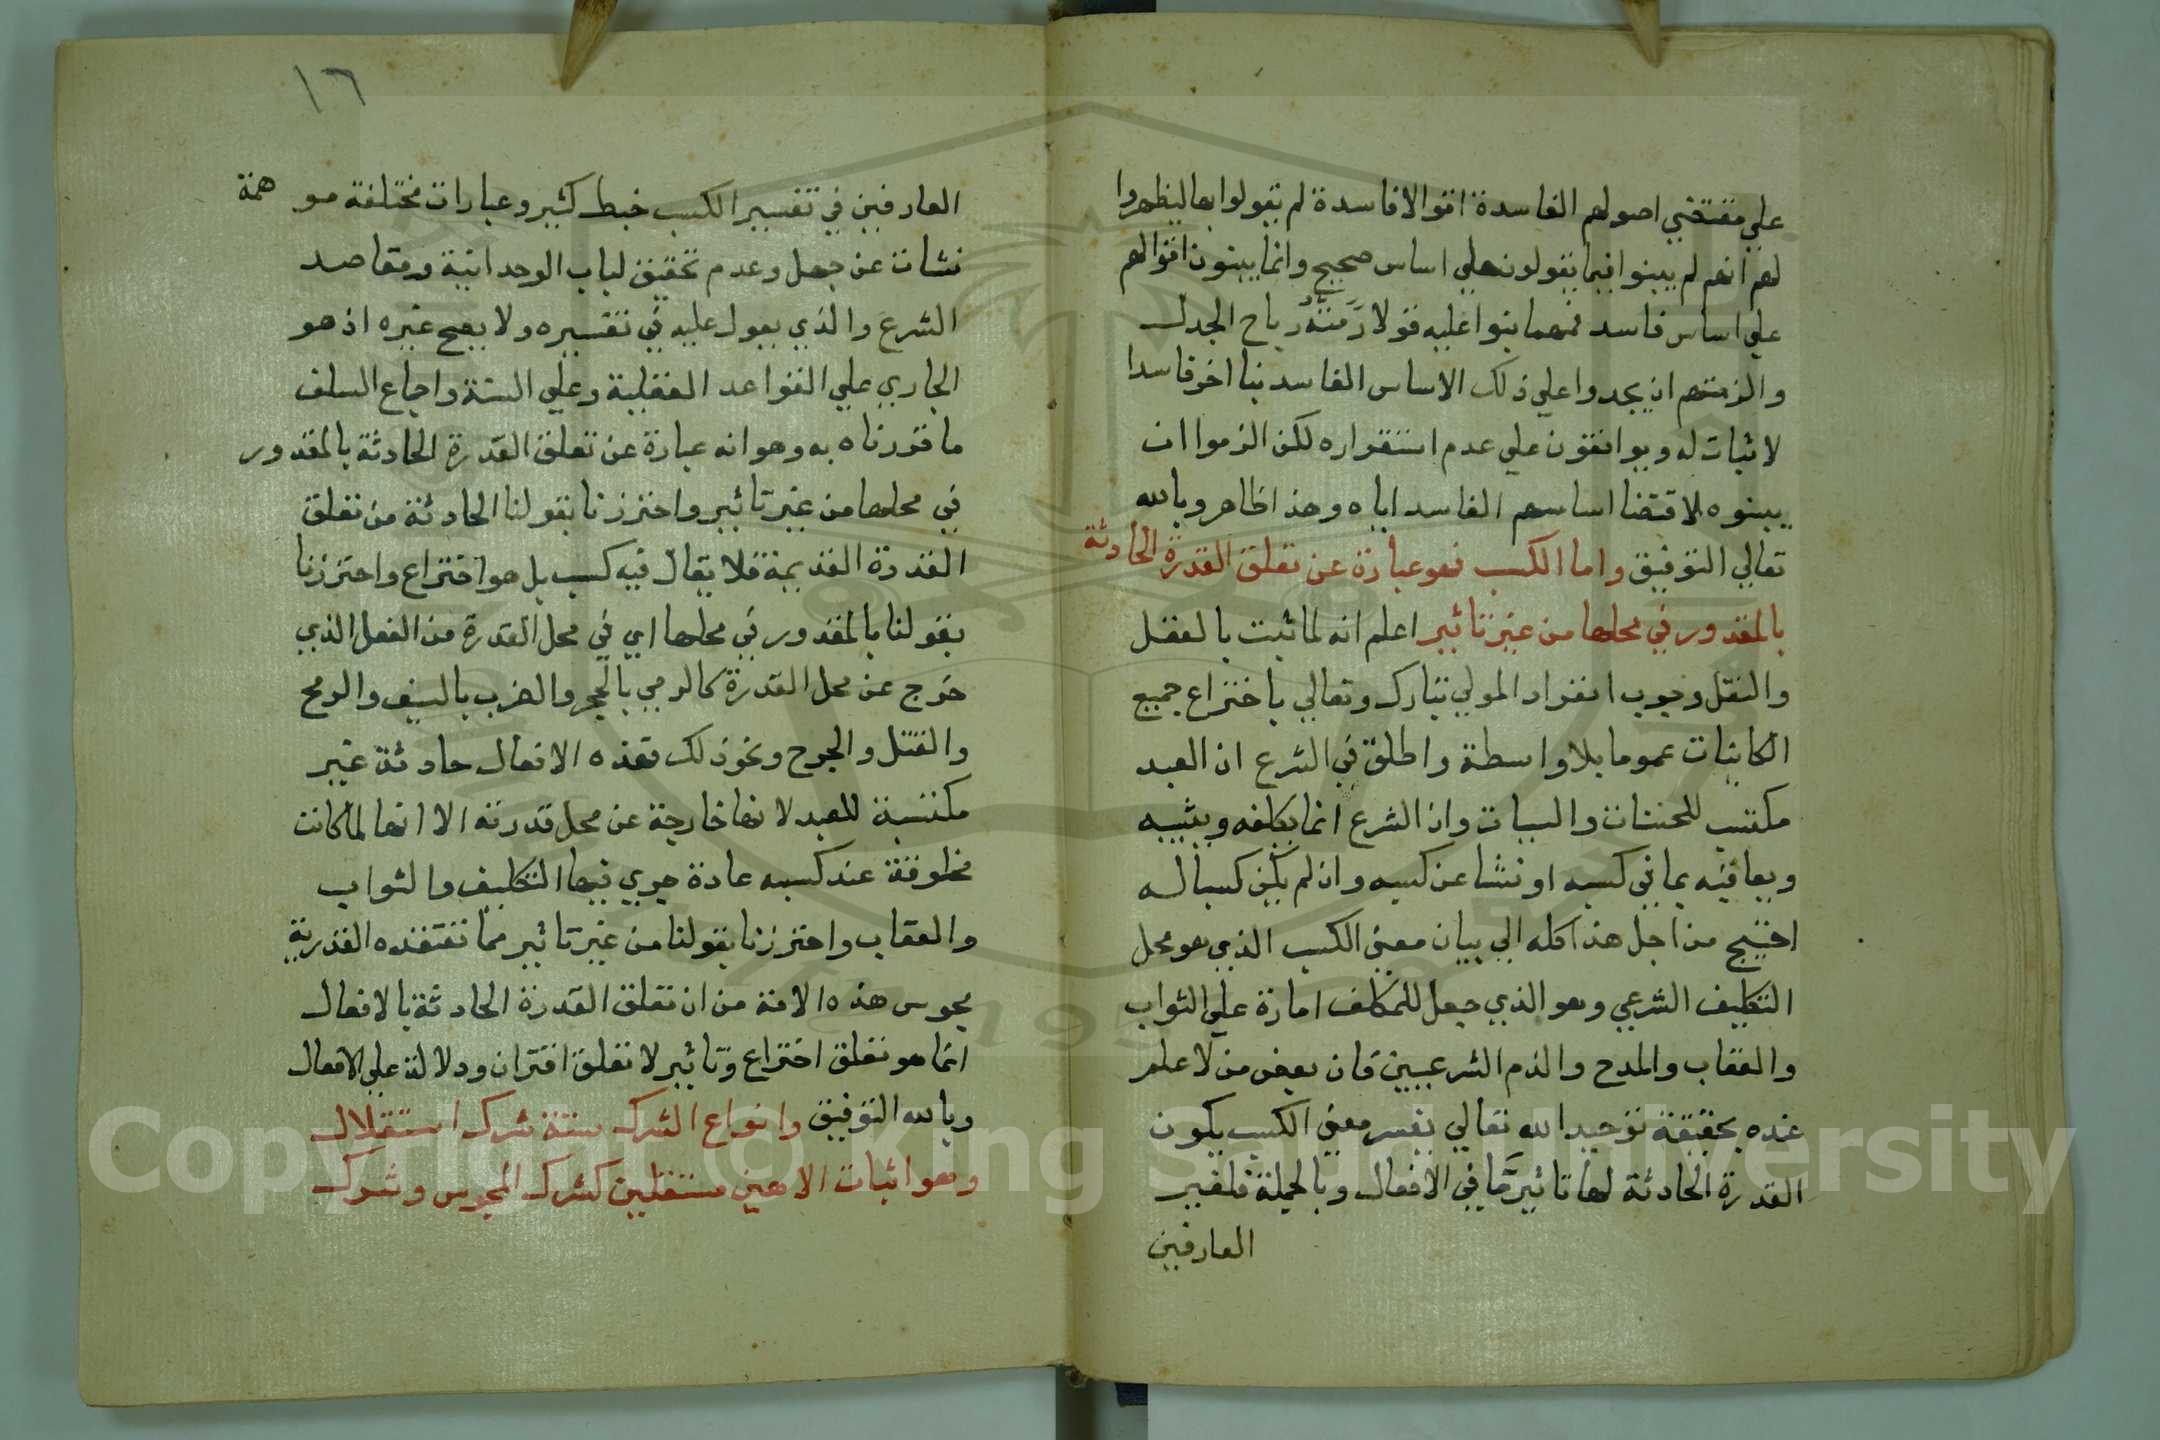 علي مقتضي اصولهم الفاسدة اقوالا فاسدة لم يقولوا بها ليظهروا
لهم انهم لم يبنوا فيما يقولون علي اساس صحيح وانما يبنون اقوالهم
علي اساس فاسد فمهما بنوا عليه قولا رَمَتْهُ رياح الجدل
والزمتهم ان يجدوا علي ذلك الاساس الفاسد بنا اخر فاسدا
لا ثبات له ويوافقون علي عدم استقراره لكن الزموا ان
يبنوه لاقتضا اساسهم الفاسد اياه وهذا ظاهر وبالله
تعالي التوفيق واما الكسب فهو عبارة عن تعلق القدرة الحادثة
بالمقدور في محلها من غير تاثير اعلم انه لما ثبت بالعقل
والنقل وجوب انفراد المولي تبارك وتعالي باختراع جميع
الكاينات عموما بلا واسطة واطلق في الشرع ان العبد
مكتسب للحسنات والسيات وان الشرع انما يكلفه ويثيبه
ويعاقبه بما في كسبه او نشا عن كسبه وان لم يكن كسبا له
احتيج من اجل هذا كله الي بيان معني الكسب الذي هو محل
التكليف الشرعي وهو الذي جعل للمكلف امارة علي الثواب
والعقاب والمدح والذم الشرعيين فان بعض من لا علم
عنده بحقيقة توحيد الله تعالي يفسر معني الكسب بكون
القدرة الحادثة لها تاثير مَّا في الافعال وبالجملة فلغير
العارفين
١٦
العارفين في تفسير الكسب خبط كثير وعبارات مختلفة موهمة
نشات عن جهل وعدم تحقيق لباب الوحدانية ومقاصد
الشرع والذي يعول عليه في تفسيره ولا يصح غيره اذ هو
الجاري علي القواعد العقلية وعلي السنة واجماع السلف
ما قررناه به وهو انه عبارة عن تعلق القدرة الحادثة بالمقدور
في محلها من غير تاثير واحترزنا بقولنا الحادثة من تعلق
القدرة القديمة فلا يقال فيه كسب بل هو اختراع واحترزنا
بقولنا بالمقدور في محلها اي في محل القدرة من الفعل الذي
خرج عن محل القدرة كالرمي بالحجر والضرب بالسيف والرمح
والقتل والجرح ونحو ذلك فهذه الافعال حادثة غير
مكتسبة للعبد لانها خارجة عن محل قدرته الا انها لما كانت
مخلوقة عند كسبه عادة جري فيها التكليف والثواب
والعقاب واحترزنا بقولنا من غير تاثير مما تعتقده القدرية
مجوس هذه الامة من ان تعلق القدرة الحادثة بالافعال
انما هو تعلق اختراع وتاثير لا تعلق اقتران ودلالة علي الافعال
وبالله التوفيق وانواع الشرك ستة شرك استقلال
وهو اثبات الاهين مستقلين كشرك المجوس وشرك
Copyright © King Saud University